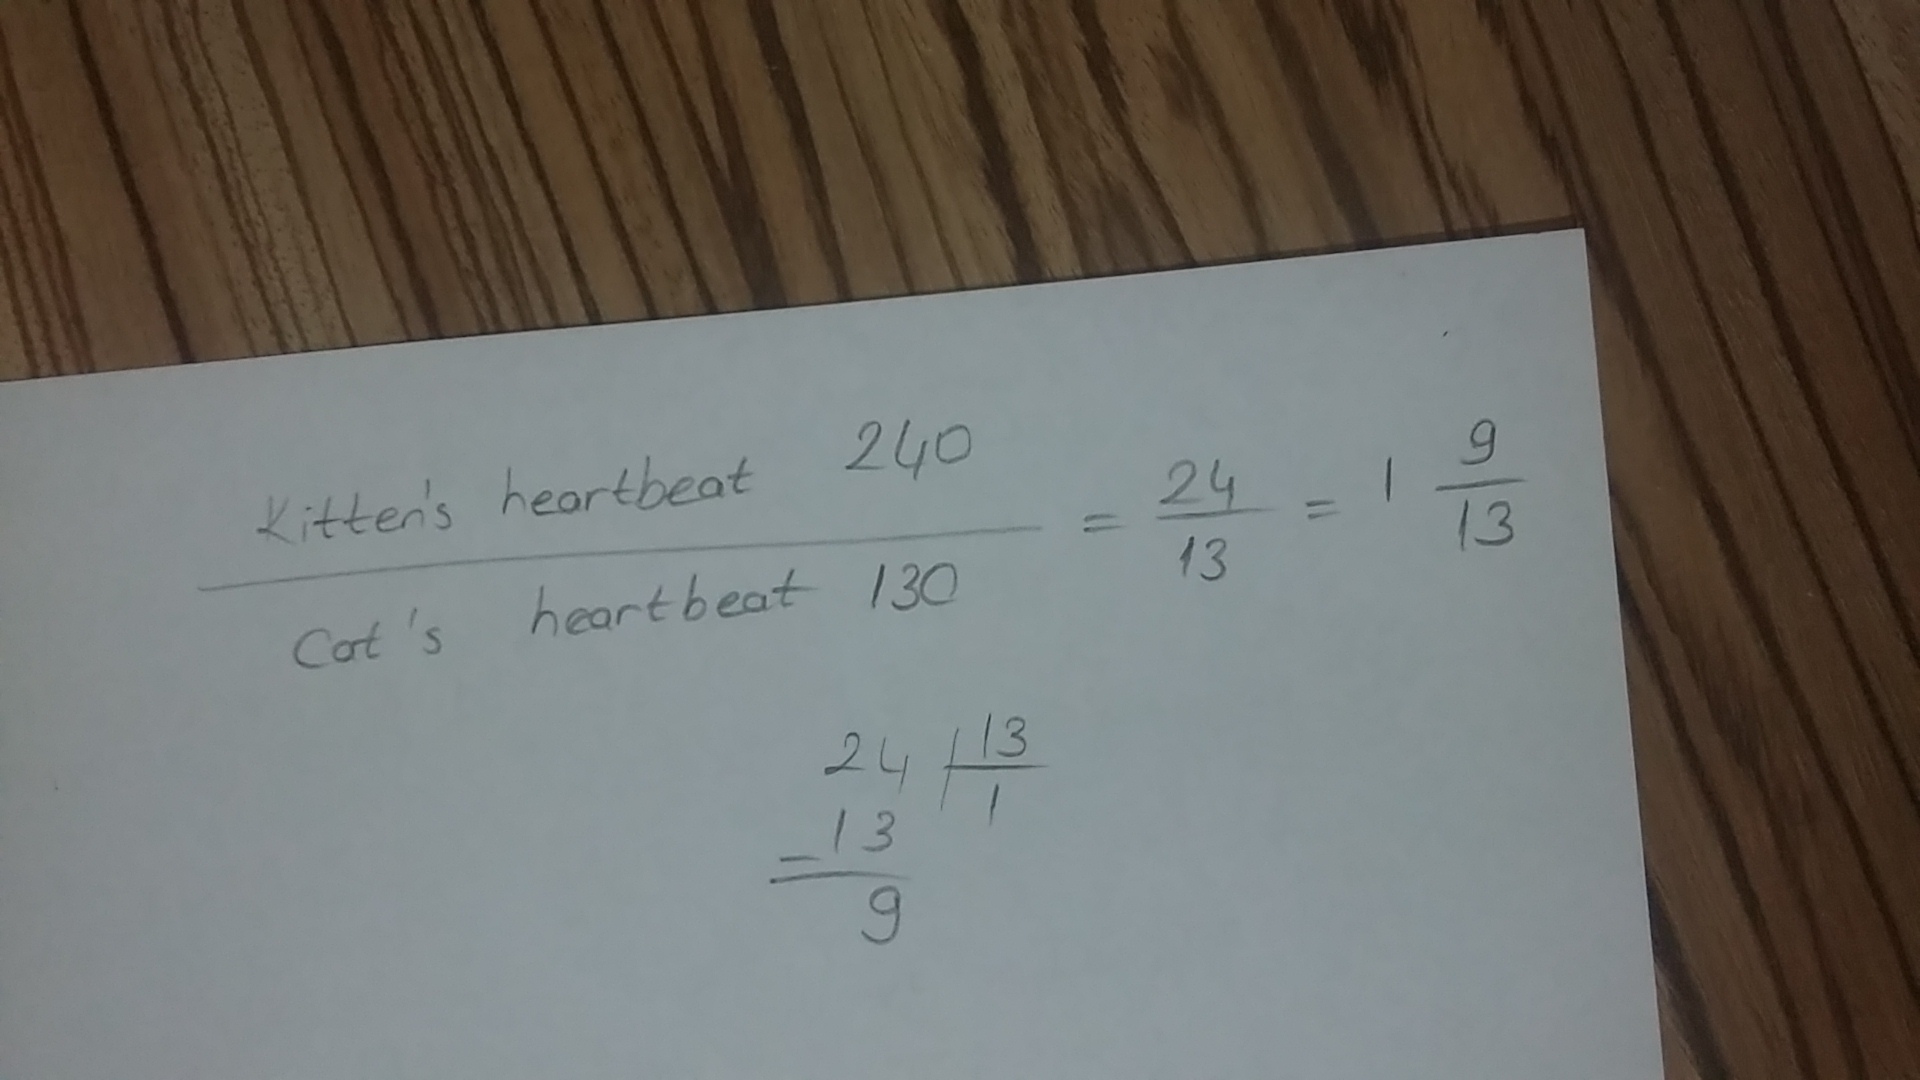 Kitten's heartbeat 240
Cat's heartbeat 130
= 24/13 = 1 9/13
24 | 13
- 13 1
9